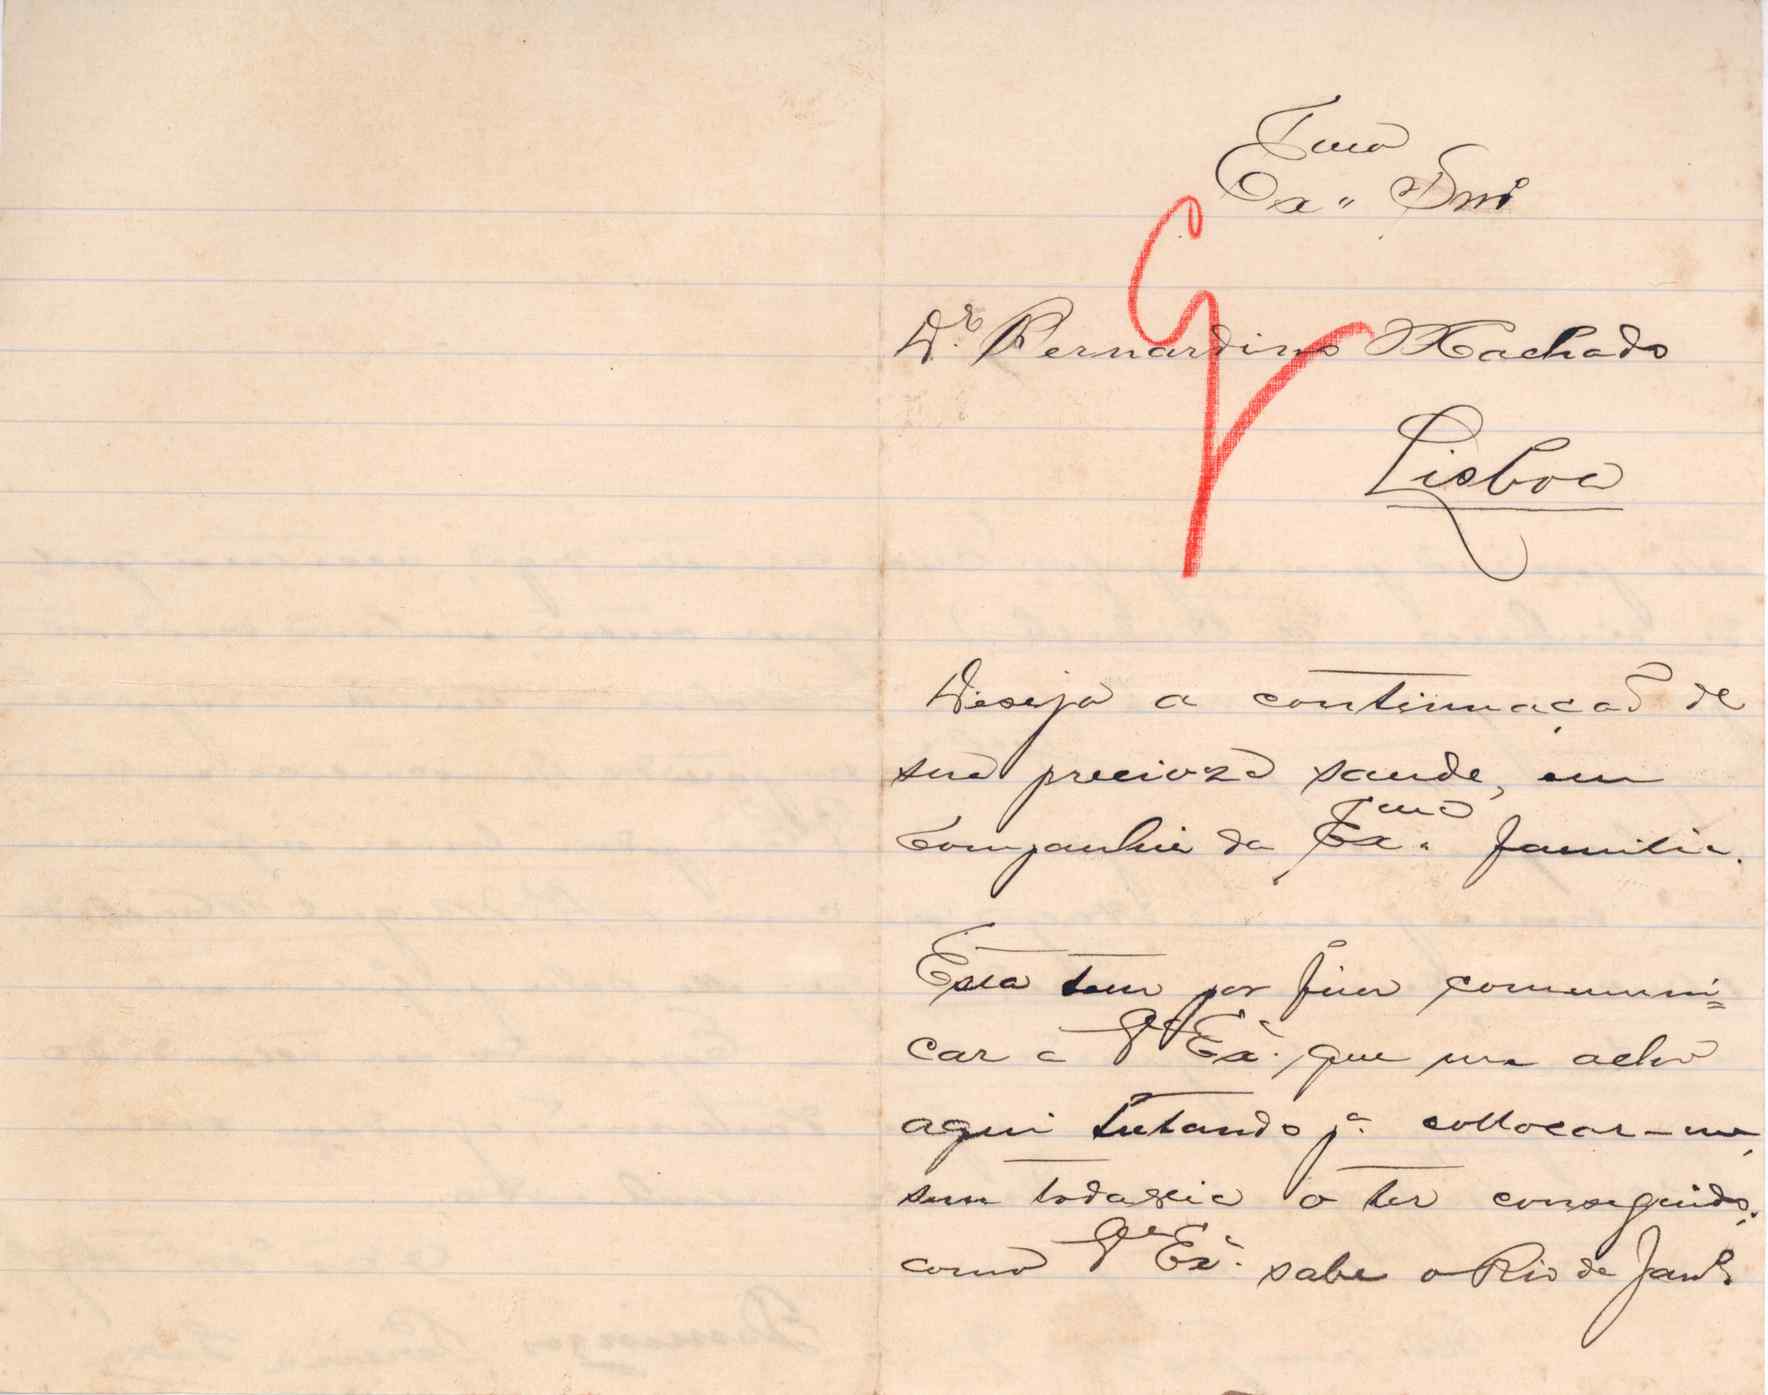 Exmo Snr
Dr. Bernardino Machado
Lisboa
Desejo a continuação de
sua precioza saude, em
companhia da Exma familia.
Esta tem por fim communi=
car a Va Exa. que me acho
aqui lutando pa. collocar-me,
sem todavia o ter conseguido.
como Va Exa. sabe o Rio de Janro